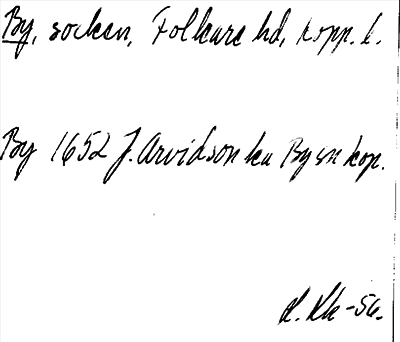 By, socken, Folkare hd, kopp. l.
By 1652 J. Arvidson ka By sn kop.
-56.